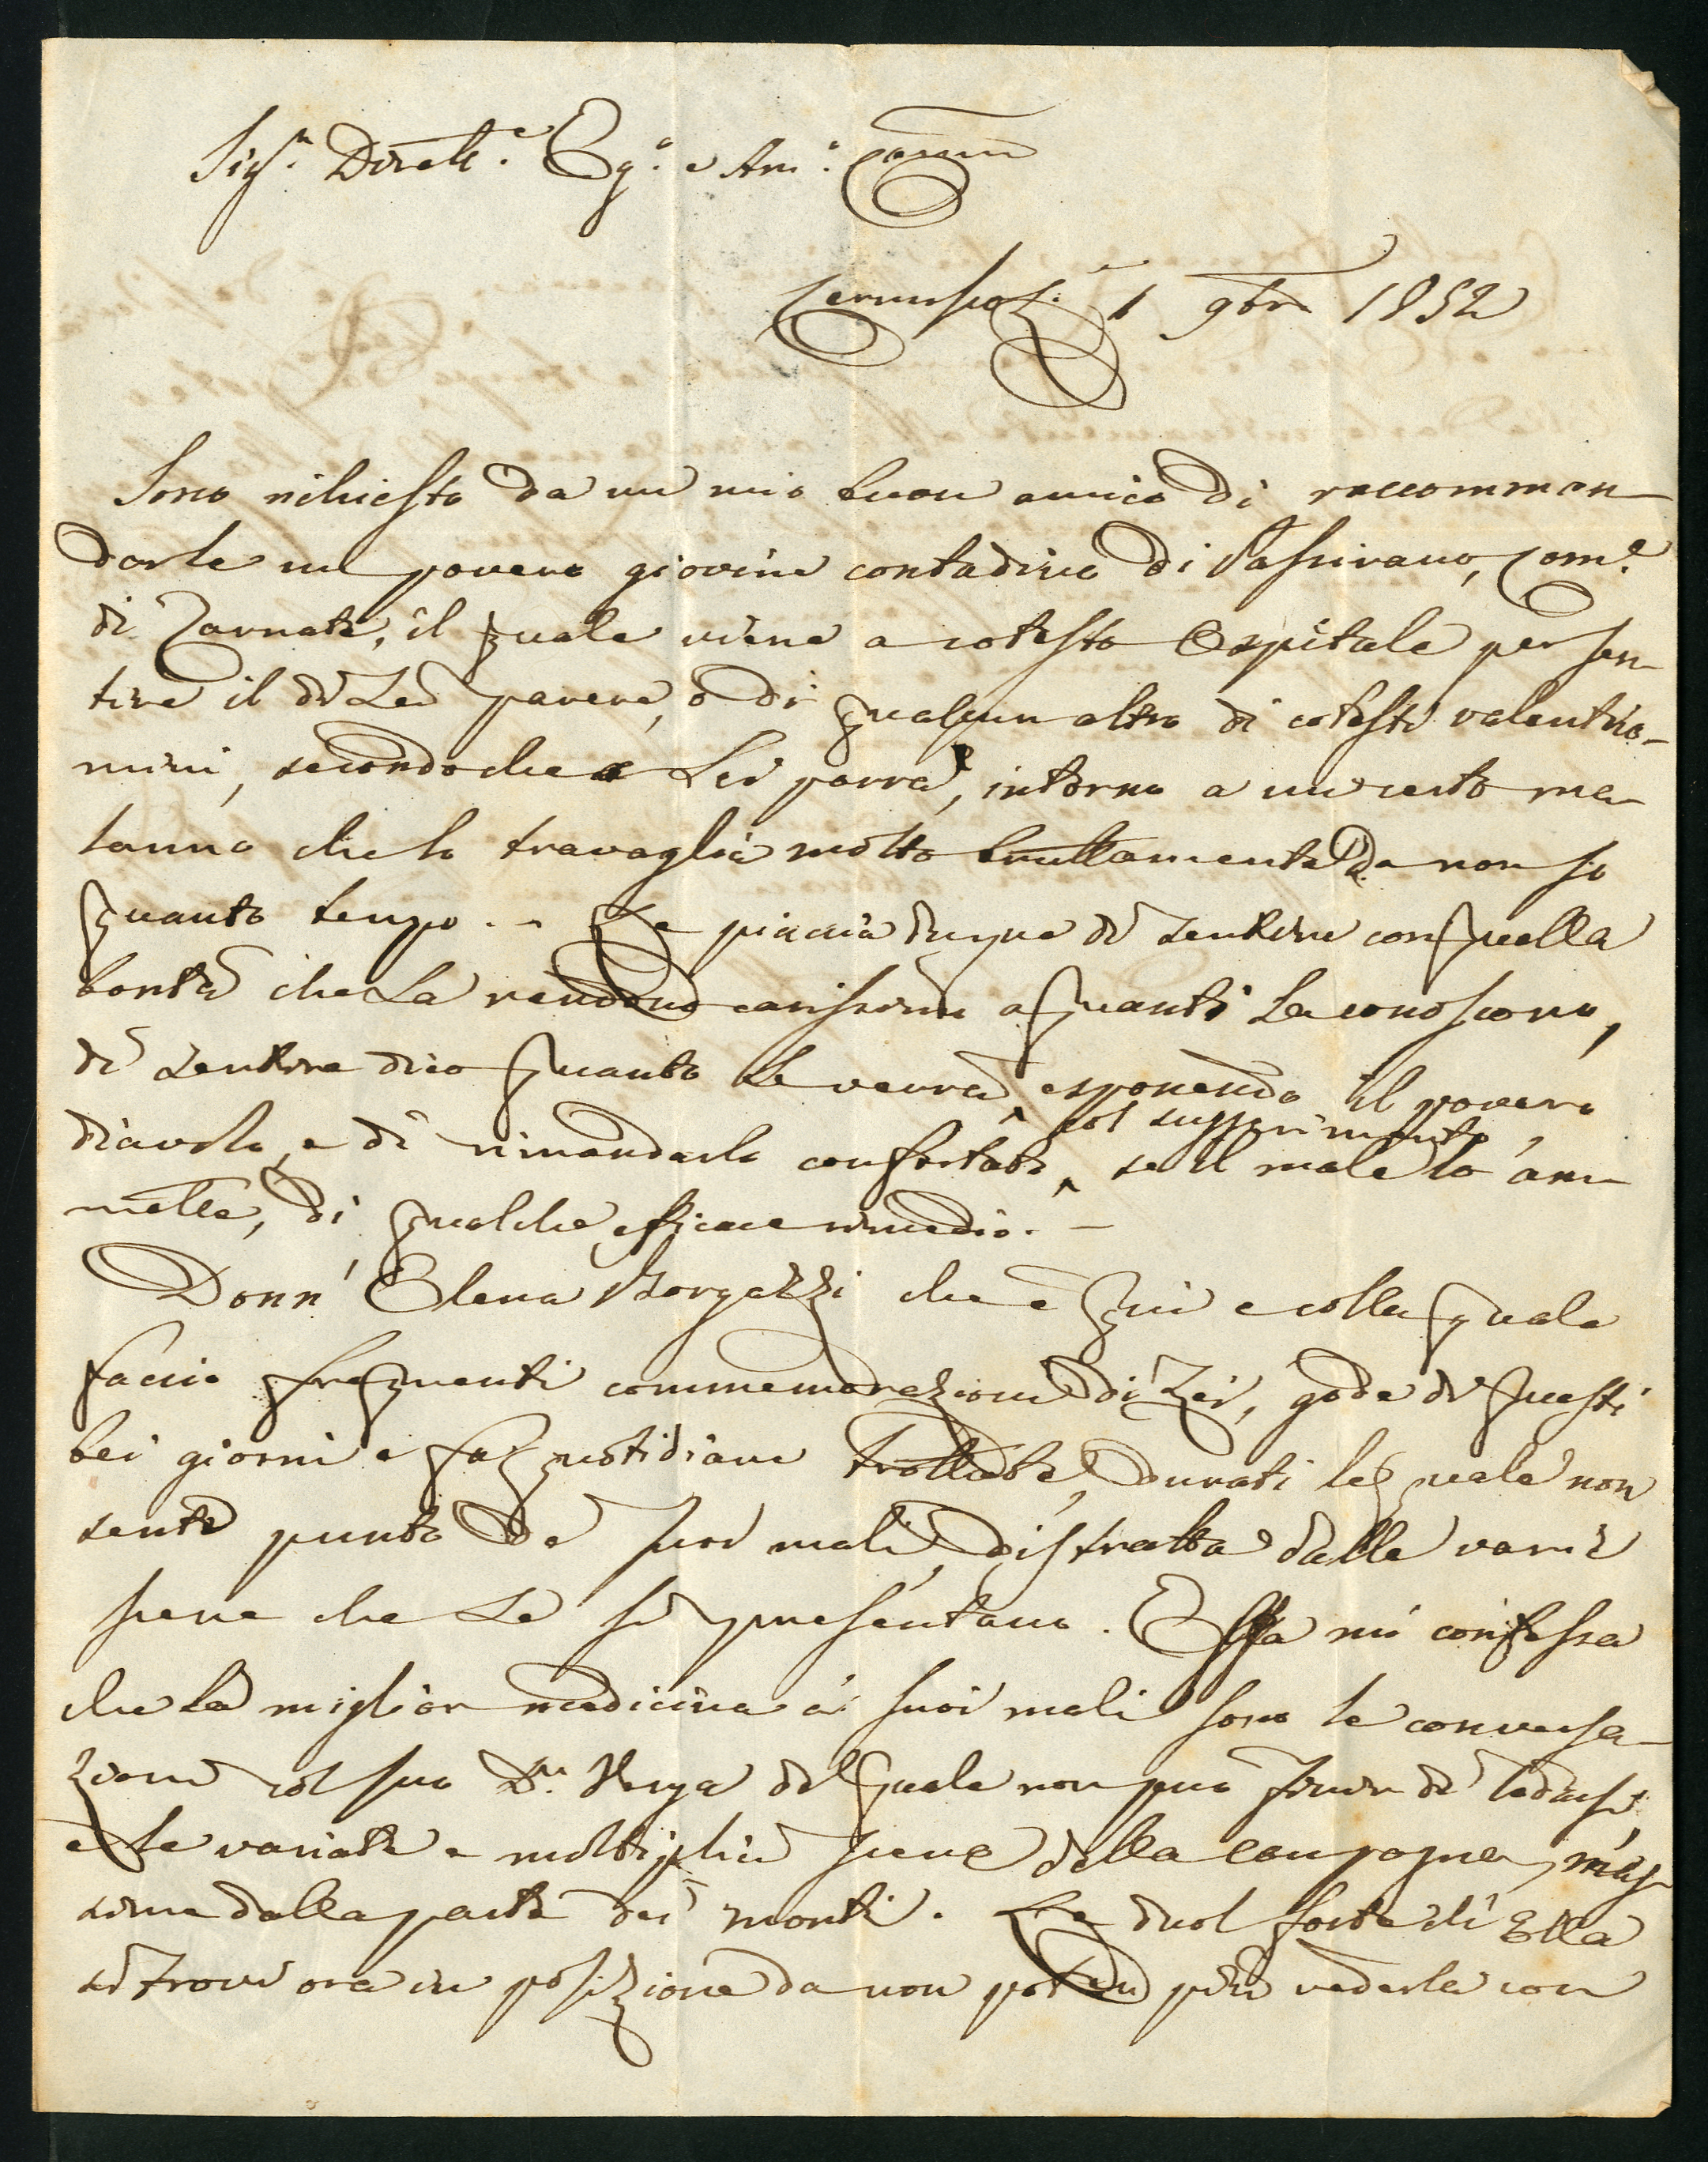 Sigr. Dirette. Ego. e Amo. Cariss.
Cernusco L. 1 9bre 1852
Sono richiesto da un mio buon amico di raccomman-
darle un povero giovine contadino di Passirano, Come.
di Carnate, il quale viene a cotesto Ospitale per sen-
tire il di Lei parere, o di qualcun altro di cotesti valentuo-
mini, secondochè a Lei parrà, intorno a un certo ma-
lanno che lo travaglia molto bruttamente da non so
quanto tempo. - Le piaccia dunque di sentire con quella
bontà che La rendono carissimo a quanti La conoscono,
di sentire dico quanto Le verrà esponendo il povero
diavolo, e di rimandarlo confortato col suggerimento, se il male lo am-
mette, di qualche efficace rimedio. -
Donn' Elena Borgazzi che è qui e colla quale
faccio frequenti commemorazioni di Lei, gode di questi
bei giorni e fa quotidiane trottate, durati le quali non
sente punto de' suoi mali, distratta dalle varie
scene che Le si presentano. Essa mi confessa
che La miglior medicina a' suoi mali sono le conversa-
zioni col suo Dr. Verga del quale non può finir di lodarsi,
e le variate e moltiplici scene della campagna, mas-
sime dalla parte dei monti. Le duol forte ch' Ella
si trovi ora in posizione da non poter più vederla con